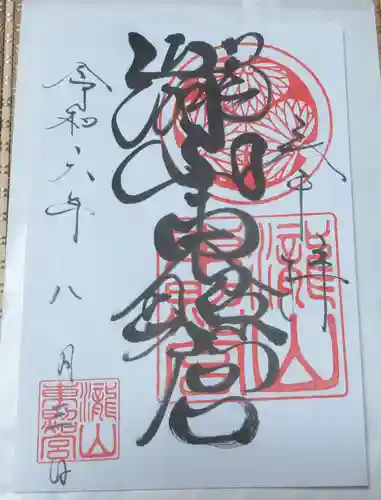 奉拝
瀧山東照宮
瀧山東照宮
令和六年八月
瀧山東照宮